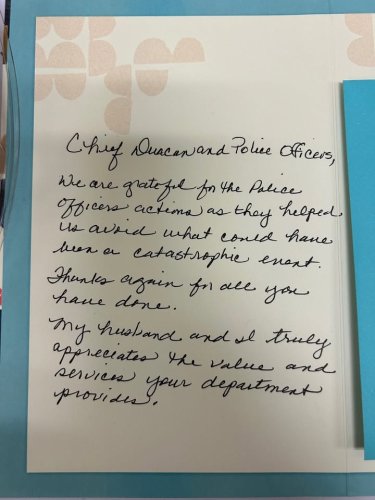 Chief Duncan and Police Officers,
We are grateful for the Police
officers actions as they helped
us avoid what could have
been a catastrophic event.
Thanks again for all you
have done.
My husband and I truly
appreciates the value and
services your department
provides.